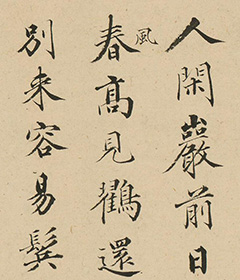 人閑巖前日
春風高見還
別来容易鬢